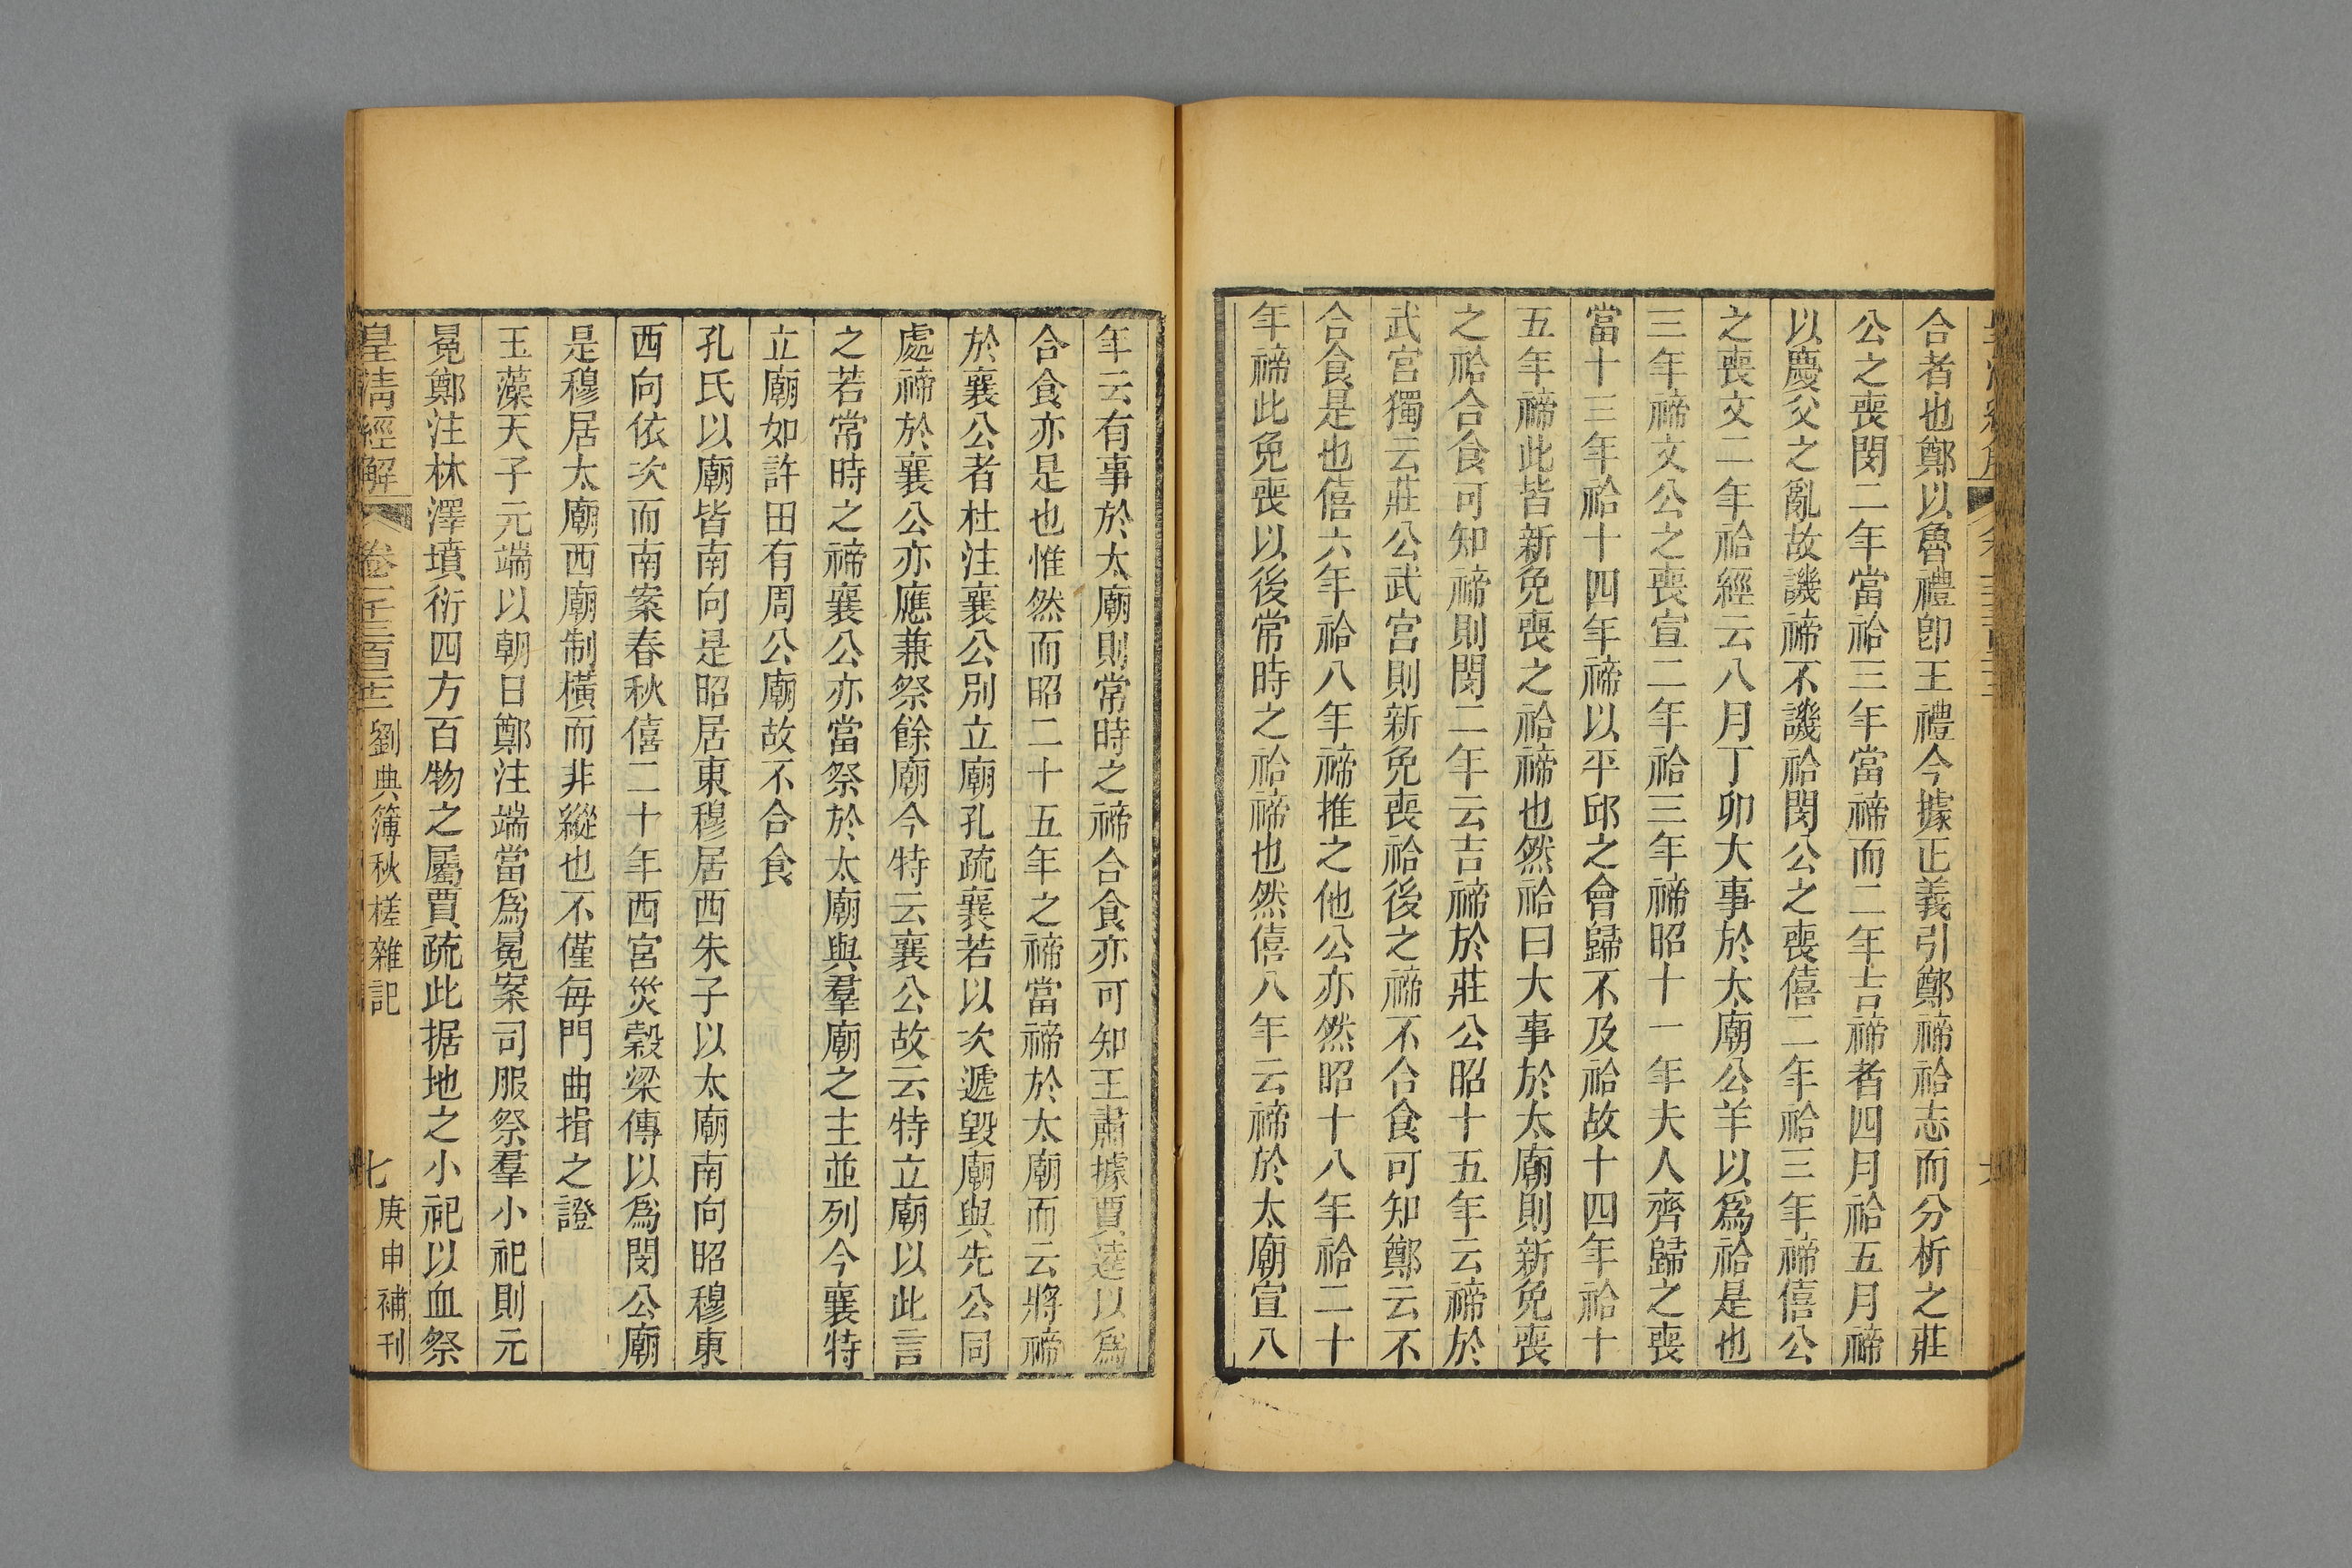 合者也鄭以魯禮卽王禮今據正義引鄭禘祫志而分析之莊
公之喪閔二年當祫三年當禘而二年吉禘者四月祫五月禘
以慶父之亂故譏禘不譏祫閔公之喪僖二年祫三年禘僖公
之喪文二年祫經云八月丁卯大事於太廟公羊以爲祫是也
三年禘文公之喪宣二年祫三年禘昭十一年夫人齊歸之喪
當十三年祫十四年禘以平邱之會歸不及祫故十四年祫十
五年禘此皆新免喪之祫禘也然祫曰大事於太廟則新免喪
之祫合食可知禘則閔二年云吉禘於莊公昭十五年云禘於
武宮獨云莊公武宮則新免喪祫後之禘不合食可知鄭云不
合食是也僖六年祫八年禘推之他公亦然昭十八年祫二十
年禘此免喪以後常時之祫禘也然僖八年云禘於太廟宣八
年云有事於太廟則常時之禘合食亦可知王肅據賈逵以爲
合食亦是也惟然而昭二十五年之禘當禘於太廟而云將禘
於襄公者杜注襄公別立廟孔疏襄若以次遞毀廟與先公同
處禘於襄公亦應兼祭餘廟今特云襄公故云特立廟以此言
之若常時之禘襄公亦當祭於太廟與羣廟之主並列今襄特
立廟如許田有周公廟故不合食
孔氏以廟皆南向是昭居東穆居西朱子以太廟南向昭穆東
西向依次而南案春秋僖二十年西宮災穀梁傳以爲閔公廟
是穆居太廟西廟制橫而非縱也不僅每門曲揖之證
玉藻天子元端以朝日鄭注端當爲冕案司服祭羣小祀則元
冕鄭注林澤墳衍四方百物之屬賈疏此据地之小祀以血祭
皇清經解 卷一千三百二十三 劉典簿秋槎雜記 七 庚申補刊